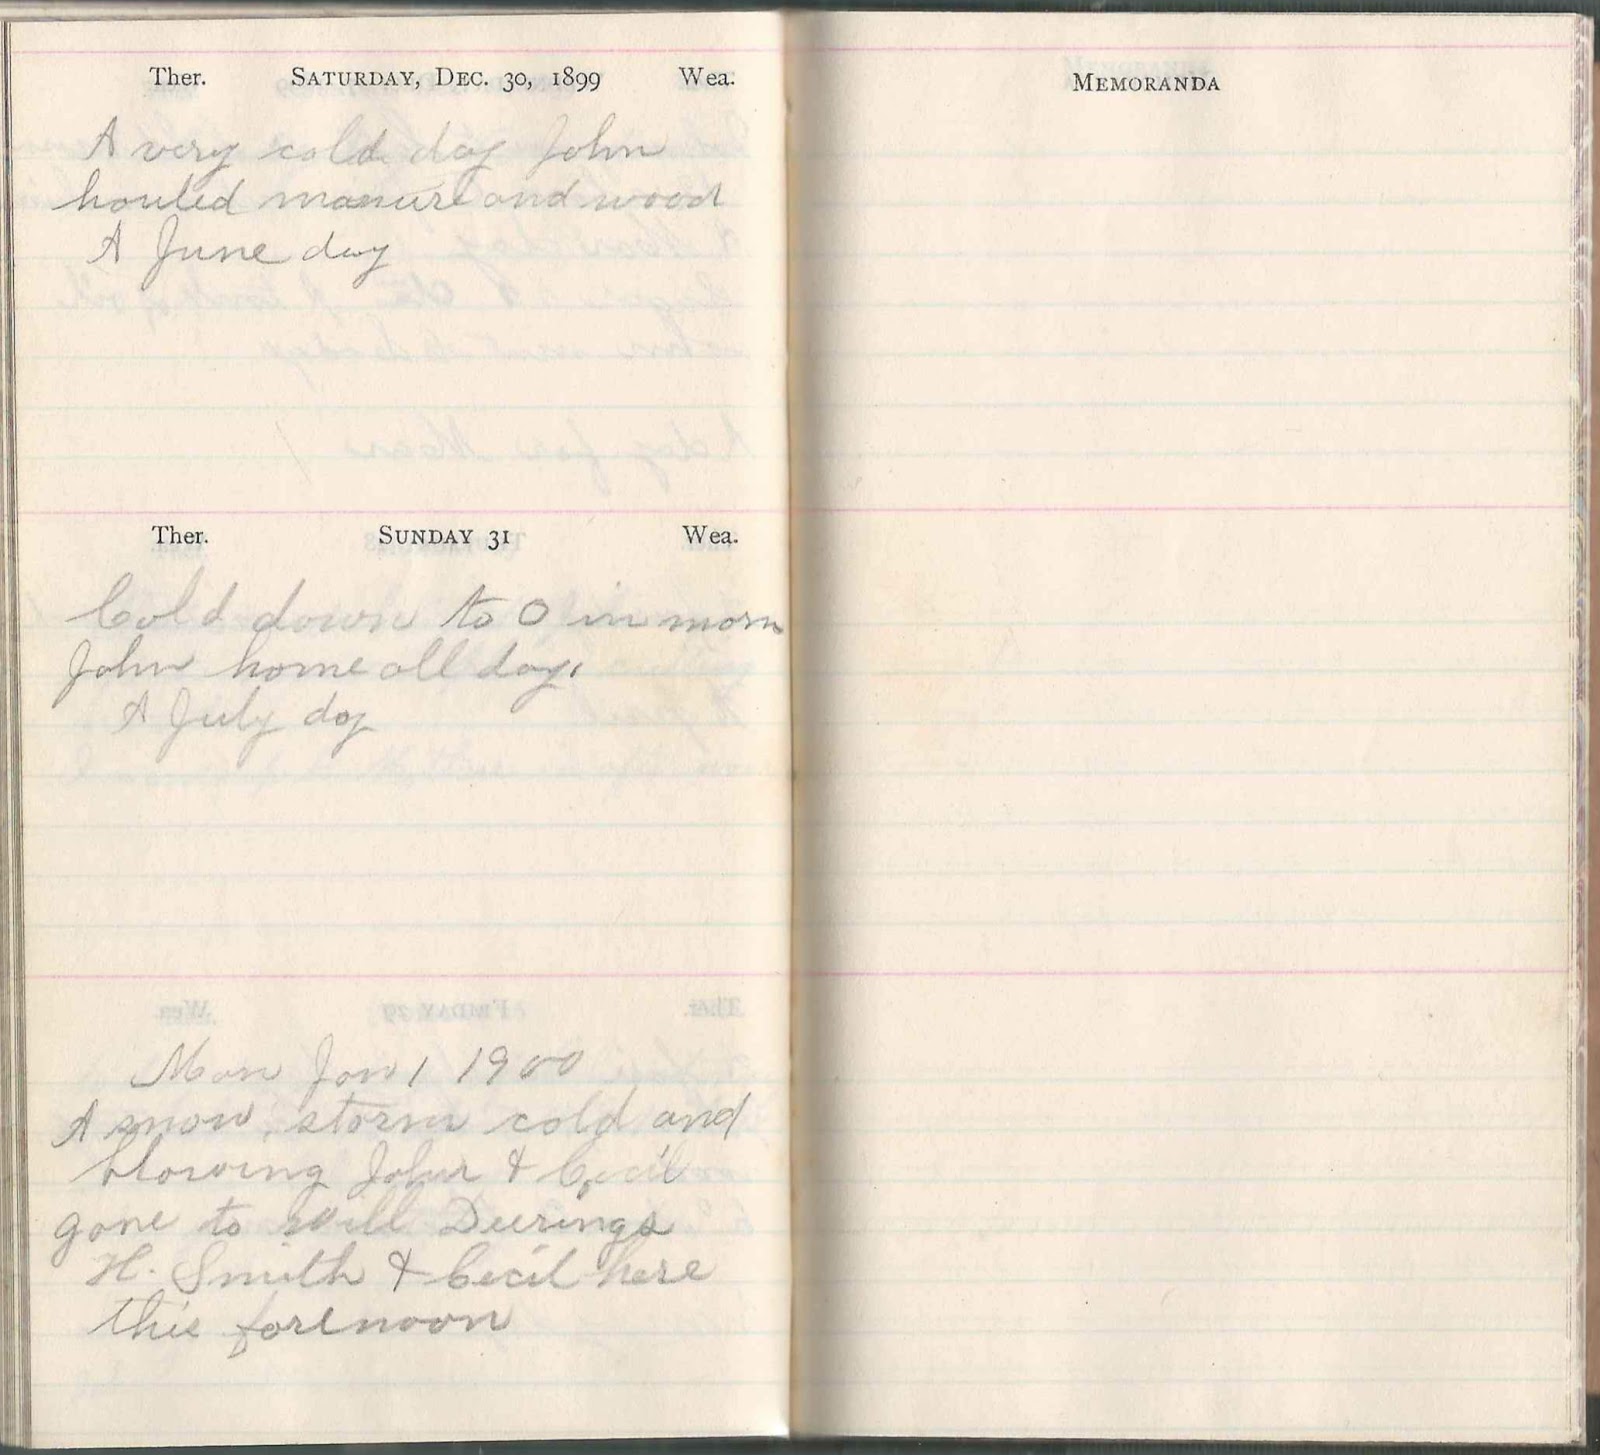 Ther. SATURDAY, DEC. 30, 1899 Wea.
A very cold day John
houled manure and wood
A June day
Ther. SUNDAY 31 Wea.
Cold down to 0 in morn
John home all day.
A July day
Mon Jan 1 1900
A snow storm cold and
blowing John & Cecil
gone to Will Deerings
H. Smith & Cecil here
this forenoon
MEMORANDA